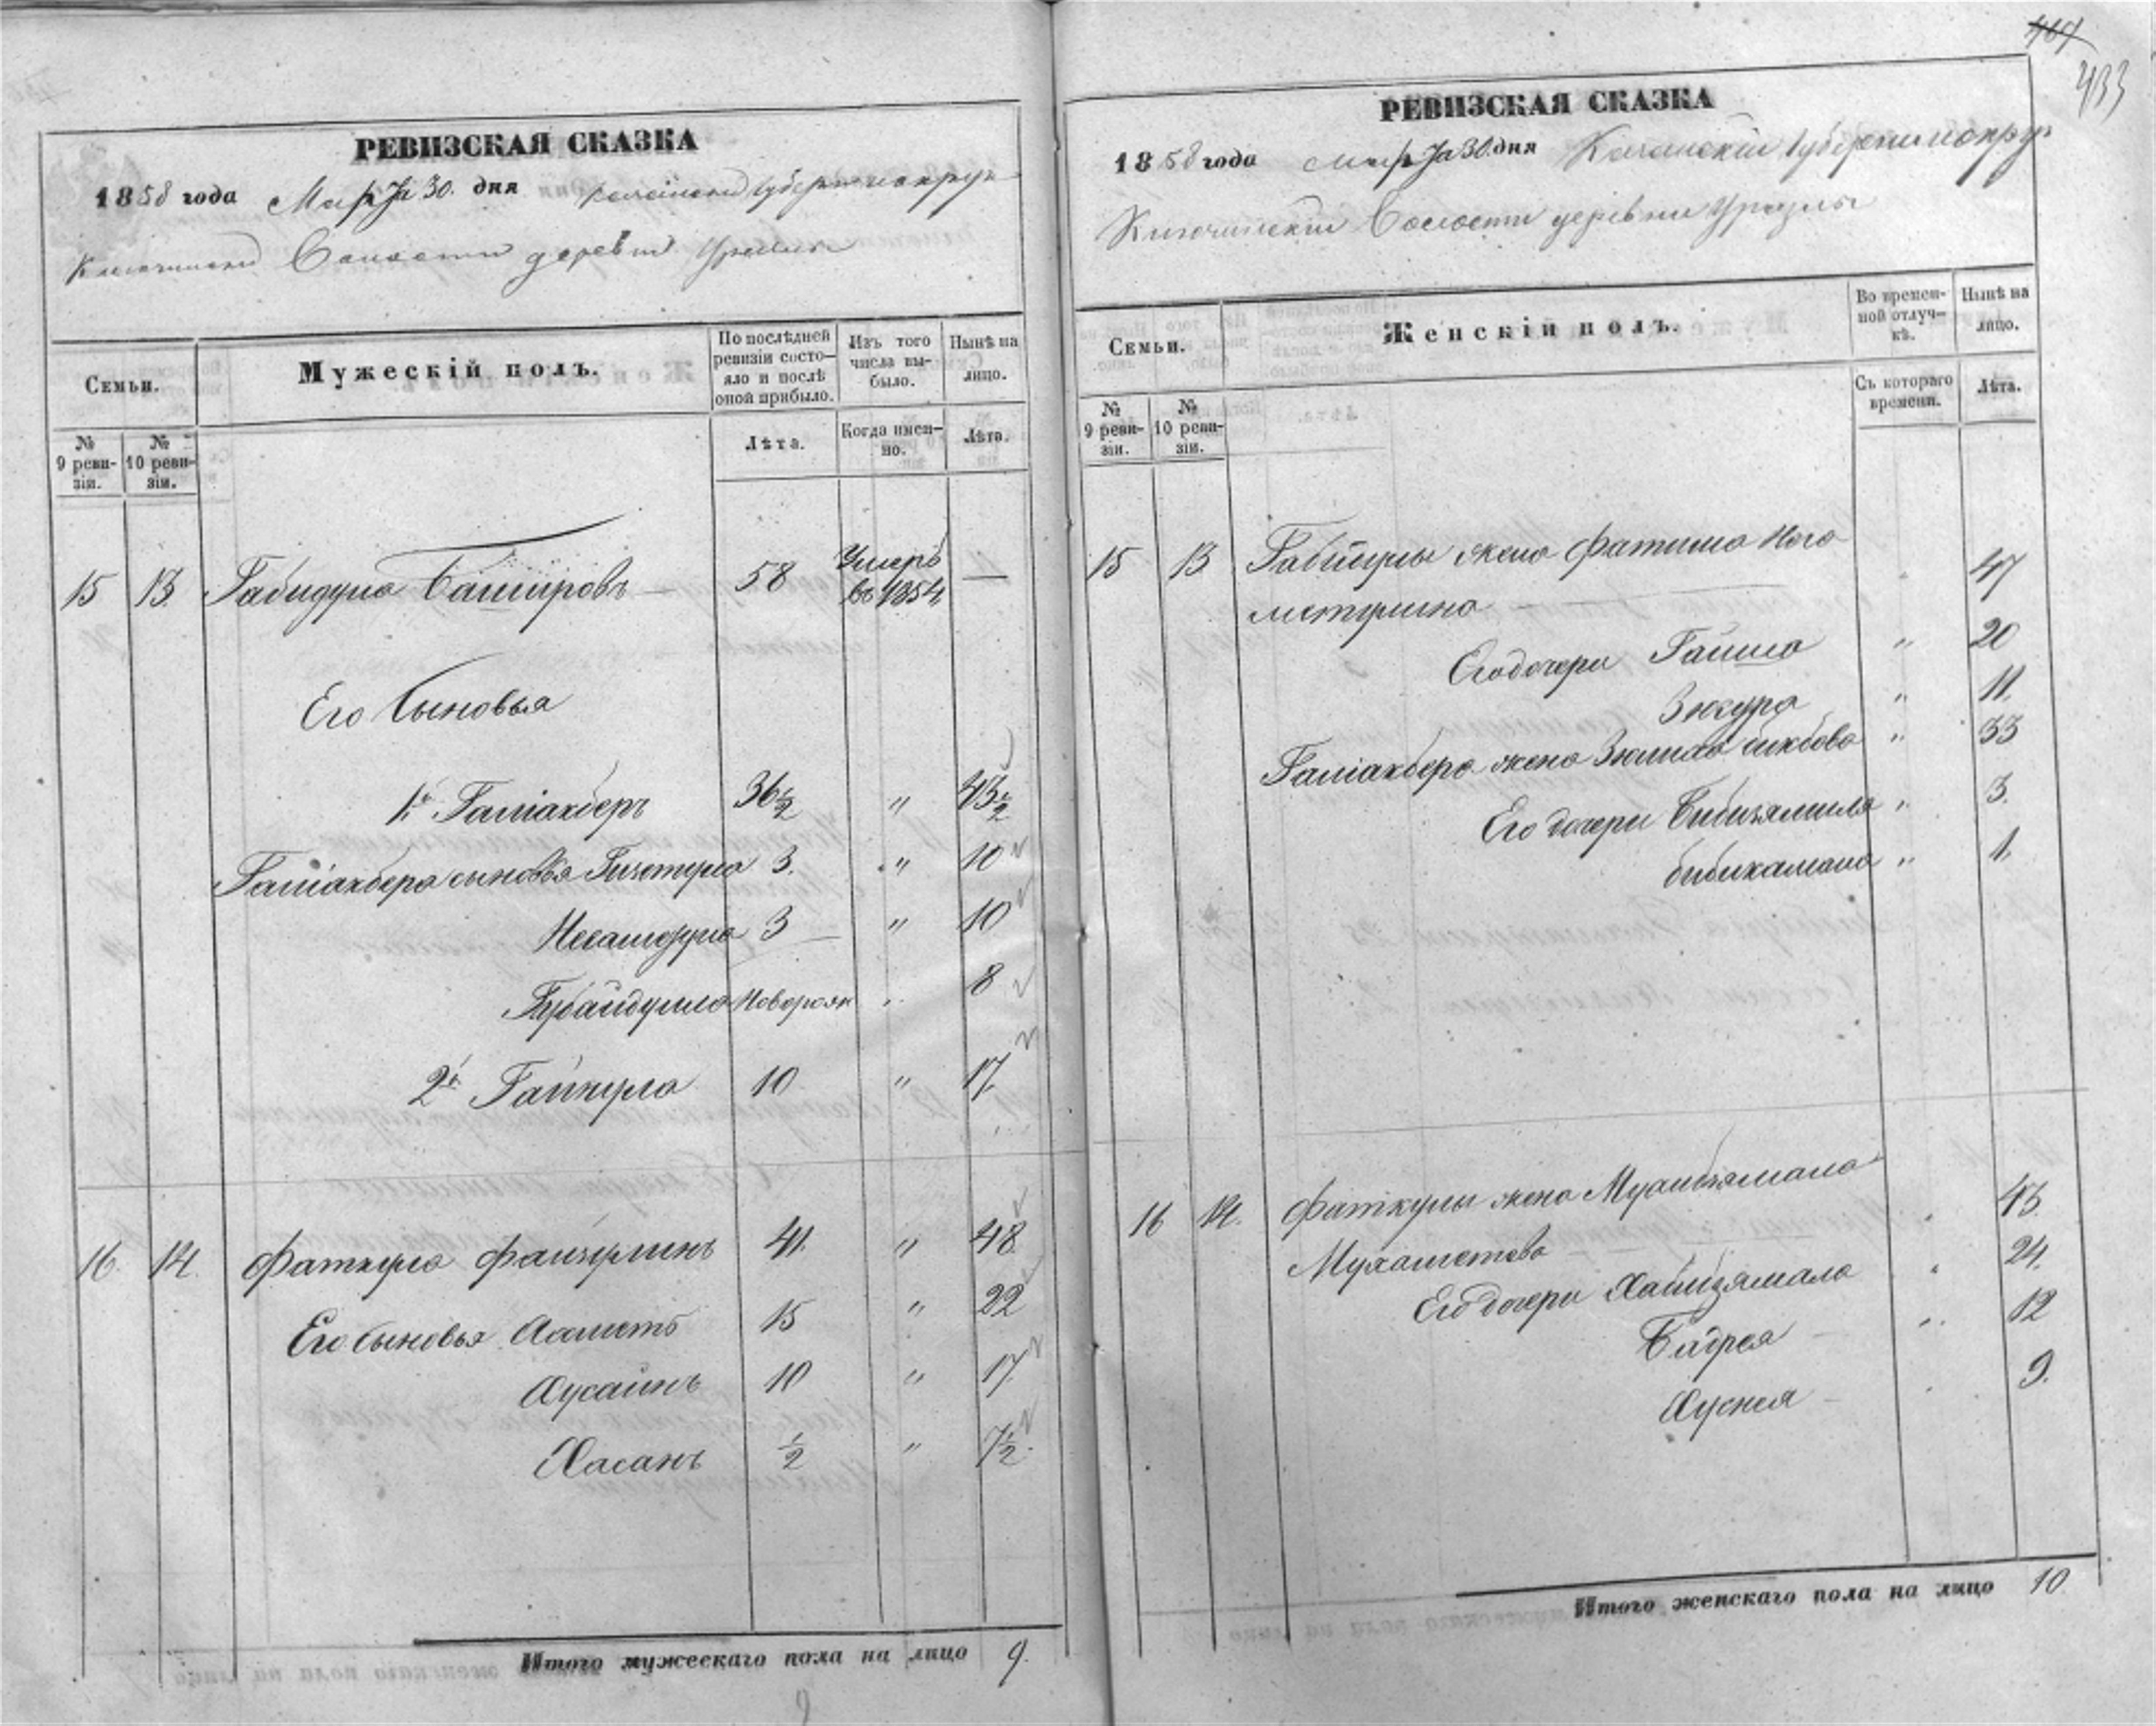 467
433
РЕВИЗСКАЯ СКАЗКА
1858 года Марта 30. дня Казанской Губернии округа
Ключинской Волости деревни Уразлы
Семьи.
Мужескій полъ.
По послѣдней ревизіи состояло и послѣ оной прибыло.
Изъ того числа выбыло.
Нынѣ на лицо.
№ 9 ревизіи.
№ 10 ревизіи.
Лѣта.
Когда именно.
Лѣта.
15 13. Габидула Башировъ 58 Умеръ въ 1854 —
Его Сыновья
1й Галіакберъ 36½ " 43½
Галіакбера сыновья Гизетула 3. " 10
3 " 10
Губайдулла Новорож " 8
2й Гайнула 10 " 17.
16. 14. Фаткула Файзулинъ 41. " 48.
Его Сыновья Ахметъ 15 " 22
Хусаинъ 10 " 17.
Хасанъ ½ " 7½.
Итого мужескаго пола на лицо 9.
РЕВИЗСКАЯ СКАЗКА
1858 года Марта 30. дня Казанской Губернии округа
Ключинской Волости деревни Уразлы
Семьи.
Женскій полъ.
Во временной отлучкѣ.
Нынѣ на лицо.
№ 9 ревизіи.
№ 10 ревизіи.
Съ котораго времени.
Лѣта.
15 13. Габидулы жена Фатима Нига
метулина " 47
Его дочери Гайша " 20
Зюгура " 11.
Галіакбера жена " 33
Его дочери Бибизямиля " 3.
Бибикамала " 1.
16 14. Фаткулы жена
Мухаметева " 43.
Его дочери Хабизямала " 24.
Бадрея " 12
Хуснея " 9.
Итого женскаго пола на лицо 10